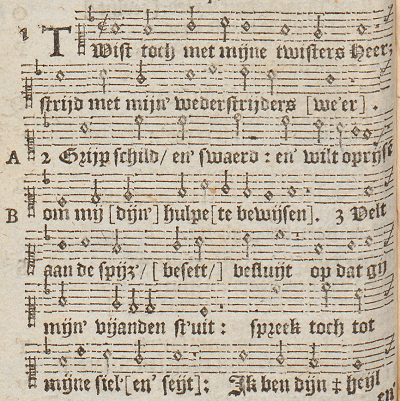 1 TWist toch met mijne twisters Heer;
strijd met mijn' wederstrijders [we'er] .
A 2 Grijp schild/ en' swaerd : en' wil't oprijse
B om mij [dijn'] hulpe [te bewijsen]. 3 Velt
aan de spijz'/ [ besett/] besluijt op dat gij
mijn' vijanden st'uit : spreek toch tot
mijne siel' [en' seijt]: Ik ben dijn ‡ heyl
en'